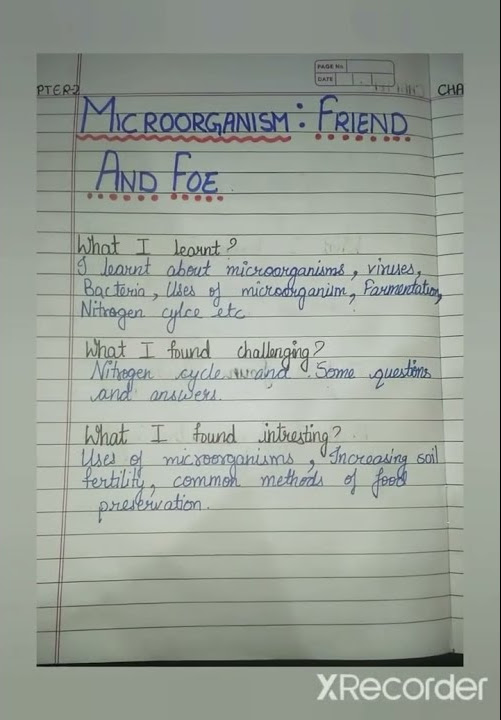 PAGE No.
DATE
PTER-2
CHA
MICROORGANISM : FRIEND
AND FOE
What I learnt?
I learnt about microorganisms, viruses,
Bacteria, Uses of microorganism, Farmentation,
Nitrogen cylce etc
What I found challenging?
Nitrogen cycle and Some questions
and answers.
What I found intresting?
Uses of microorganisms, Increasing soil
fertility, common methods of food
preservation.
XRecorder